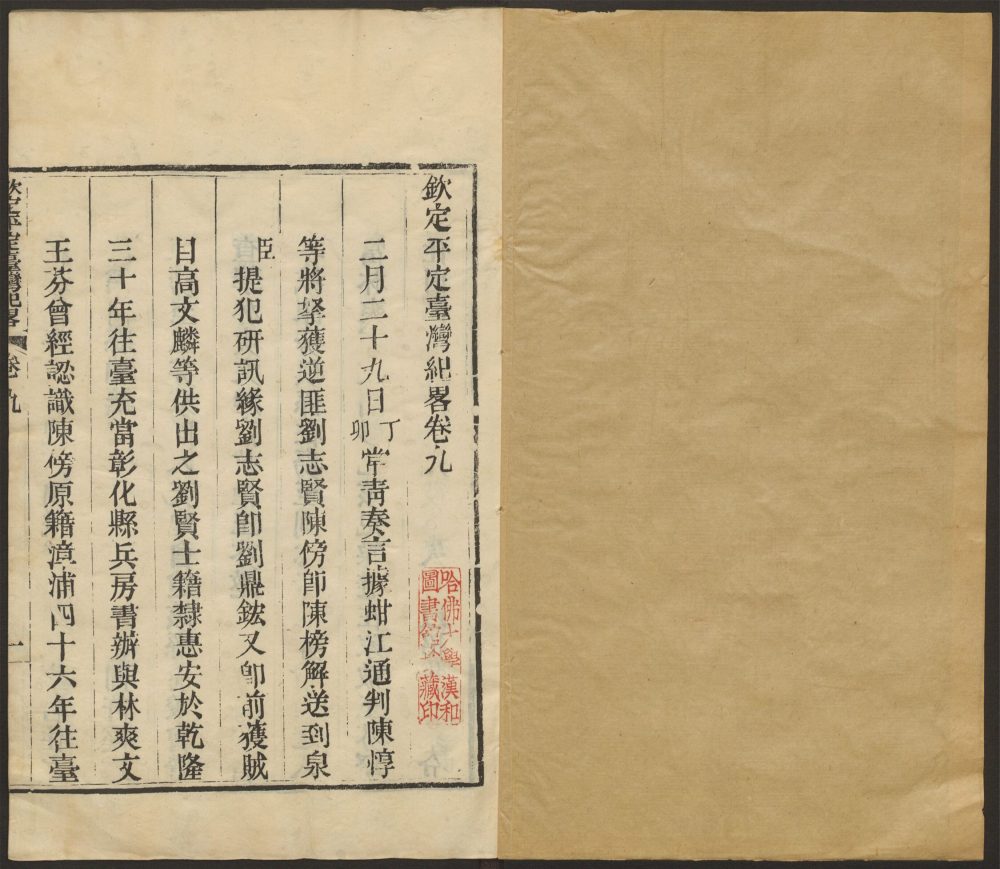 欽定平定臺灣紀畧卷九
二月二十九日丁卯常青奏言據蚶江通判陳惇
等將拏獲逆匪劉志賢陳傍卽陳榜解送到泉
臣提犯研訊緣劉志賢卽劉鼎鋐又卽前獲賊
目高文麟等供出之劉賢士籍隸惠安於乾隆
三十年往臺充當彰化縣兵房書辦與林爽文
王芬曾經認識陳傍原籍漳浦四十六年往臺
欽定平定臺灣紀畧
卷九
一
哈佛大學漢和
圖書館 藏印